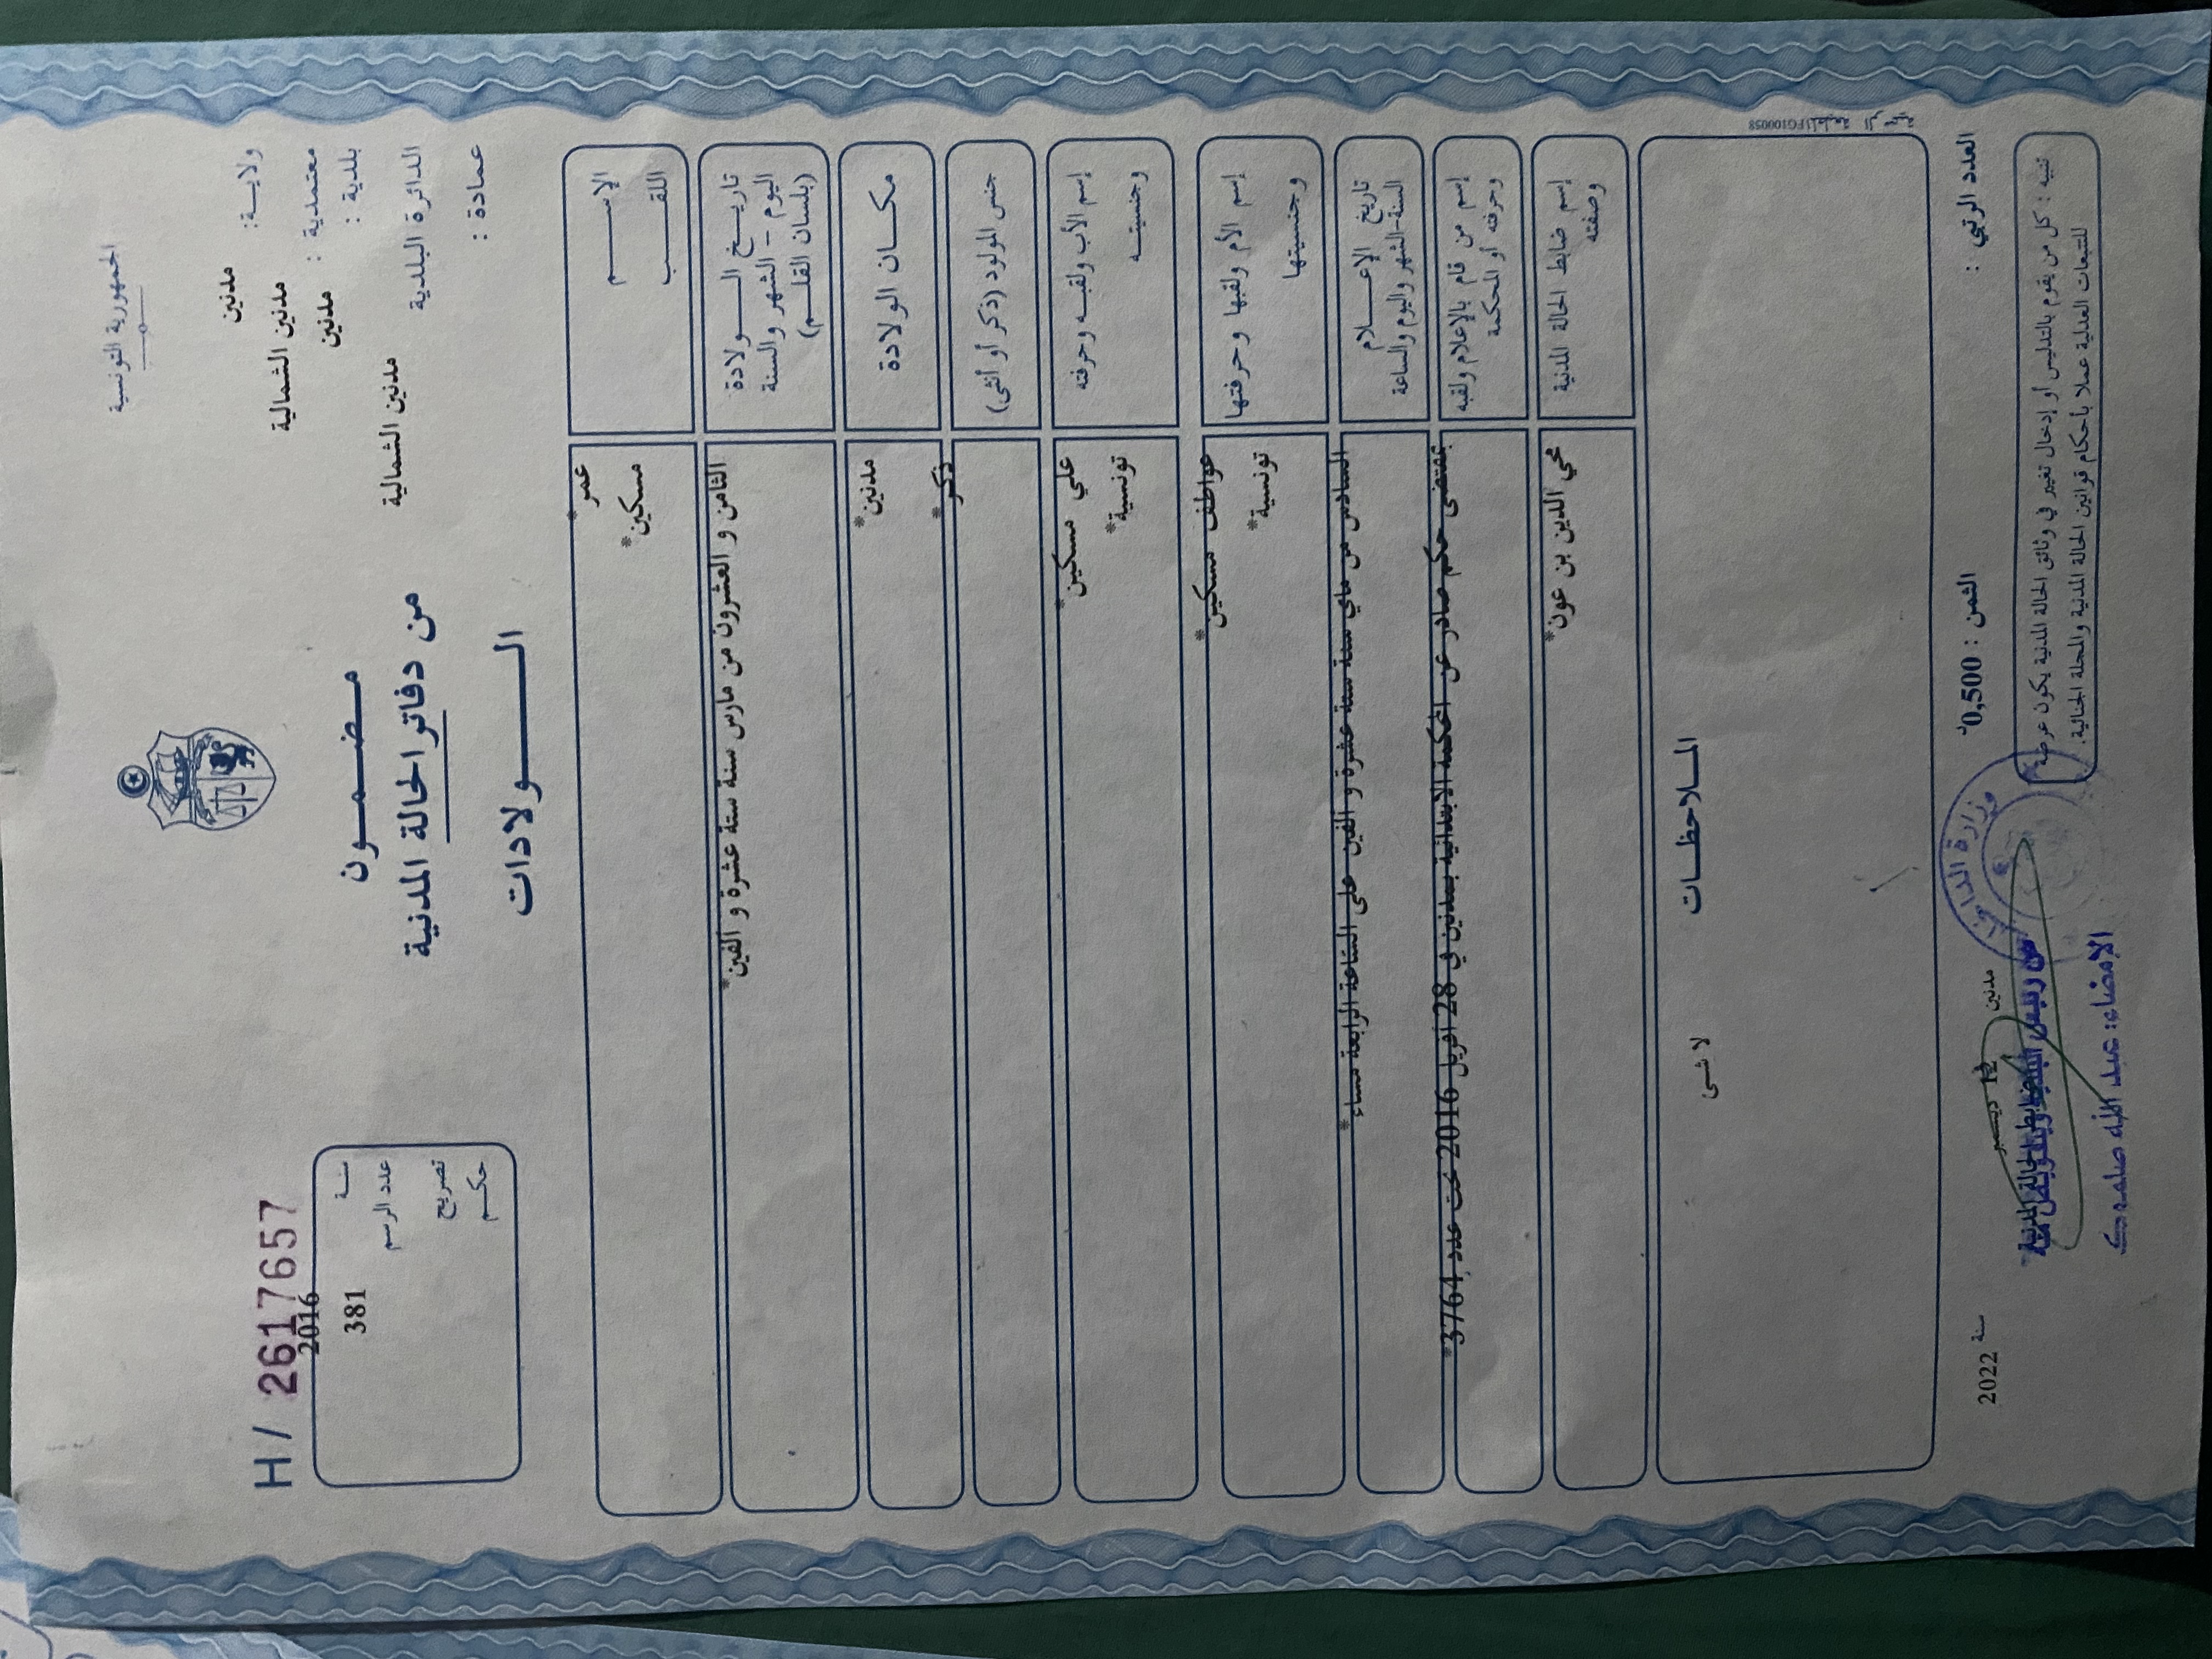 الجمهورية التونسية
ولاية: مدنين
معتمدية : مدنين الشمالية
بلدية : مدنين
الدائرة البلدية مدنين الشمالية
عمادة :
مضمون
من دفاتر الحالة المدنية
الولادات
H/ 2617657
سنة 2016
عدد الرسم 381
تصريح
حكم
الإسم عمر*
اللقب مسكين*
تاريخ الولادة الثامن و العشرون من مارس سنة ستة عشرة و الفين*
اليوم - الشهر والسنة
(بلسان القلم)
مكان الولادة مدنين*
جنس المولود (ذكر أو أنثى) ذكر*
إسم الأب ولقبه وحرفته علي مسكين*
وجنسيته تونسية*
إسم الأم ولقبها وحرفتها عواطف مسكين*
وجنسيتها تونسية*
تاريخ الإعلام السادس من ماي سنة ستة عشرة و الفين على الساعة الرابعة مساء*
السنة-الشهر واليوم والساعة
إسم من قام بالإعلام ولقبه بمقتضى حكم صادر عن المحكمة الابتدائية بمدنين في 28 افريل 2016 تحت عدد 3764*
وحرفته أو المحكمة
إسم ضابط الحالة المدنية محي الدين بن عون*
وصفته
الملاحظات
لا شى
المطبعة الرسمية FG100058
العدد الرتبي :
الثمن : 0,500د
مدنين 12 ديسمبر سنة 2022
تنبيه : كل من يقوم بالتدليس أو إدخال تغيير في وثائق الحالة المدنية يكون عرضة
للتتبعات العدلية عملا بأحكام قوانين الحالة المدنية والمجلة الجنائية.
وزارة الداخلية
الإمضاء: عبد الله